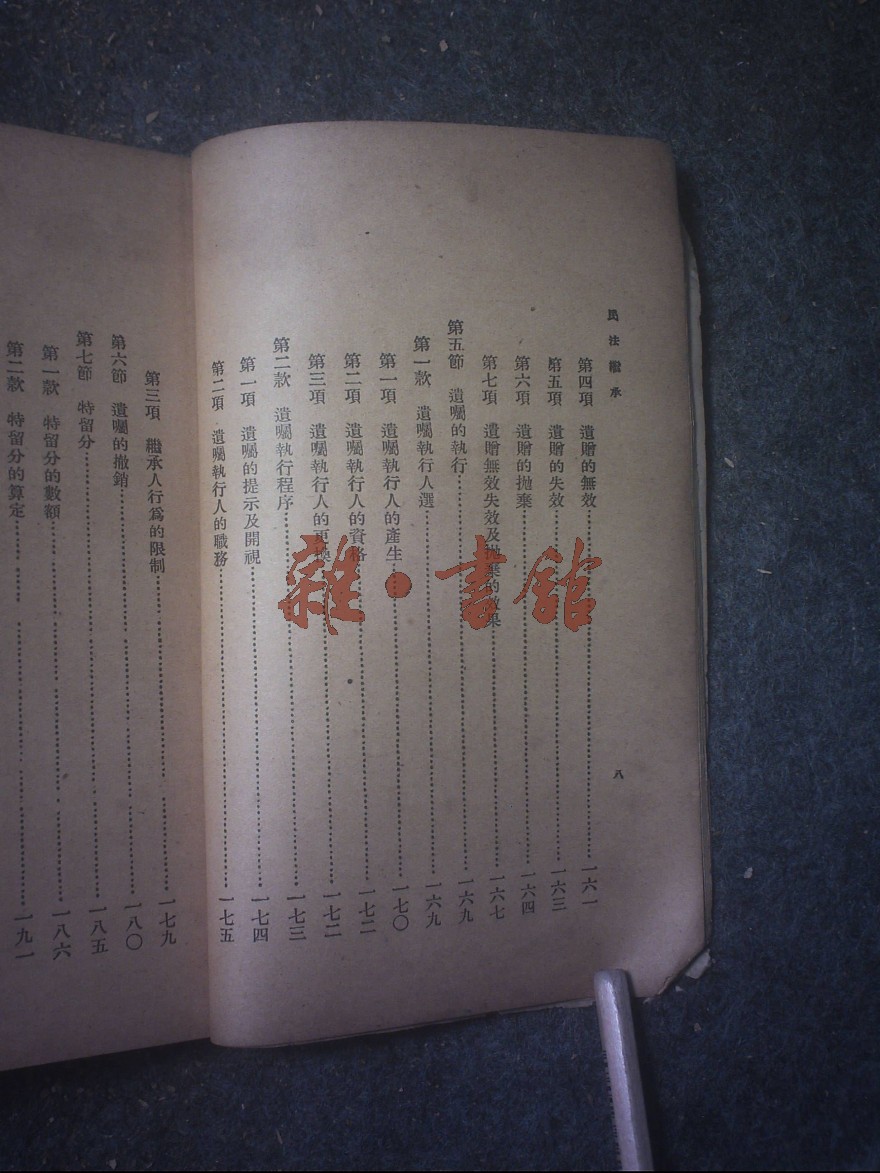 民法繼承
八
第四項 遺贈的無效 一六一
第五項 遺贈的失效 一六三
第六項 遺贈的拋棄 一六四
第七項 遺贈無效失效及拋棄的效果 一六七
第五節 遺囑的執行 一六九
第一款 遺囑執行人選 一六九
第一項 遺囑執行人的產生 一七〇
第二項 遺囑執行人的資格 一七二
第三項 遺囑執行人的更換 一七二
第二款 遺囑執行程序 一七三
第一項 遺囑的提示及開視 一七四
第二項 遺囑執行人的職務 一七五
第三項 繼承人行爲的限制 一七九
第六節 遺囑的撤銷 一八〇
第七節 特留分 一八五
第一款 特留分的數額 一八六
第二款 特留分的算定 一九一
雜·書館